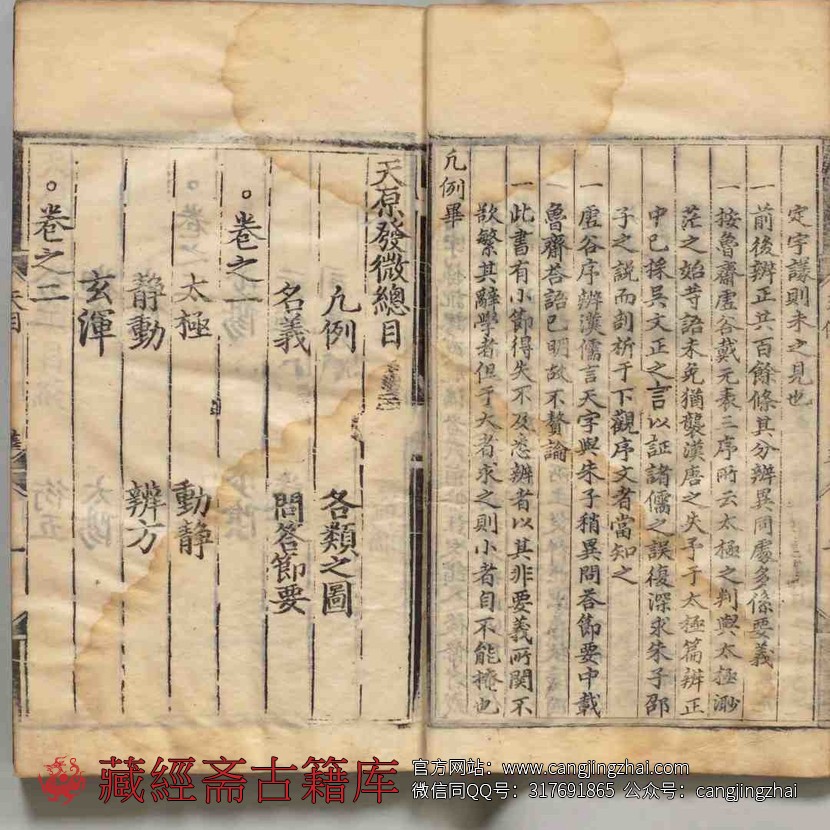 定宇議則未之見也
一前後辨正共百餘條其分辨異同處多係要義
一按魯齋虛谷戴元表三序所云太極之判與太極渺
茫之始等語未免猶襲漢唐之失予于太極篇辨正
中已採吳文正之言以証諸儒之誤復深求朱子邵
子之說而剖析于下觀序文者當知之
一虛谷序辨漢儒言天字與朱子稍異問荅節要中載
魯齋荅語已明故不贅論
一此書有小節得失不及悉辨者以其非要義所關不
欲繁其辭學者但于大者求之則小者自不能掩也
凡例畢
天原發微總目
凡例 各類之圖
名義 問荅節要
。卷之一
太極 動靜
靜動 辨方
玄渾
。卷之二
藏經斋古籍库
官方网站：www.cangjingzhai.com
微信同QQ号：317691865 公众号：cangjingzhai